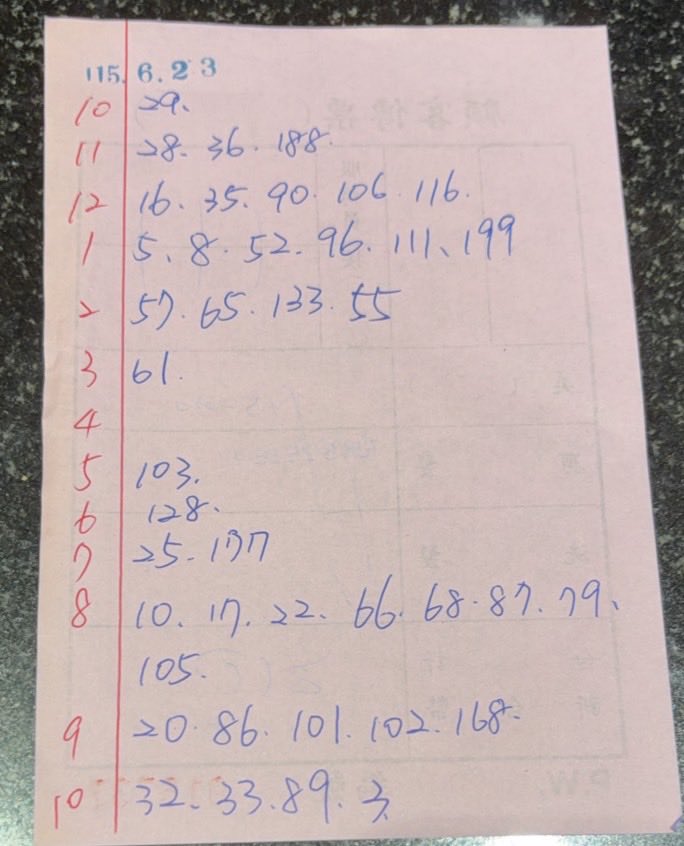 115.6.23
10 29、
11 28. 36. 188.
12 16. 35. 90. 106. 116.
1 5、8. 52. 96. 111、199
2 57. 65. 133. 55
3 61.
4
5 103.
6 128.
7 25. 177
8 10. 17. 22. 66. 68. 87. 79、
105.
9 20. 86. 101. 102. 168.
10 32. 33. 89. 3